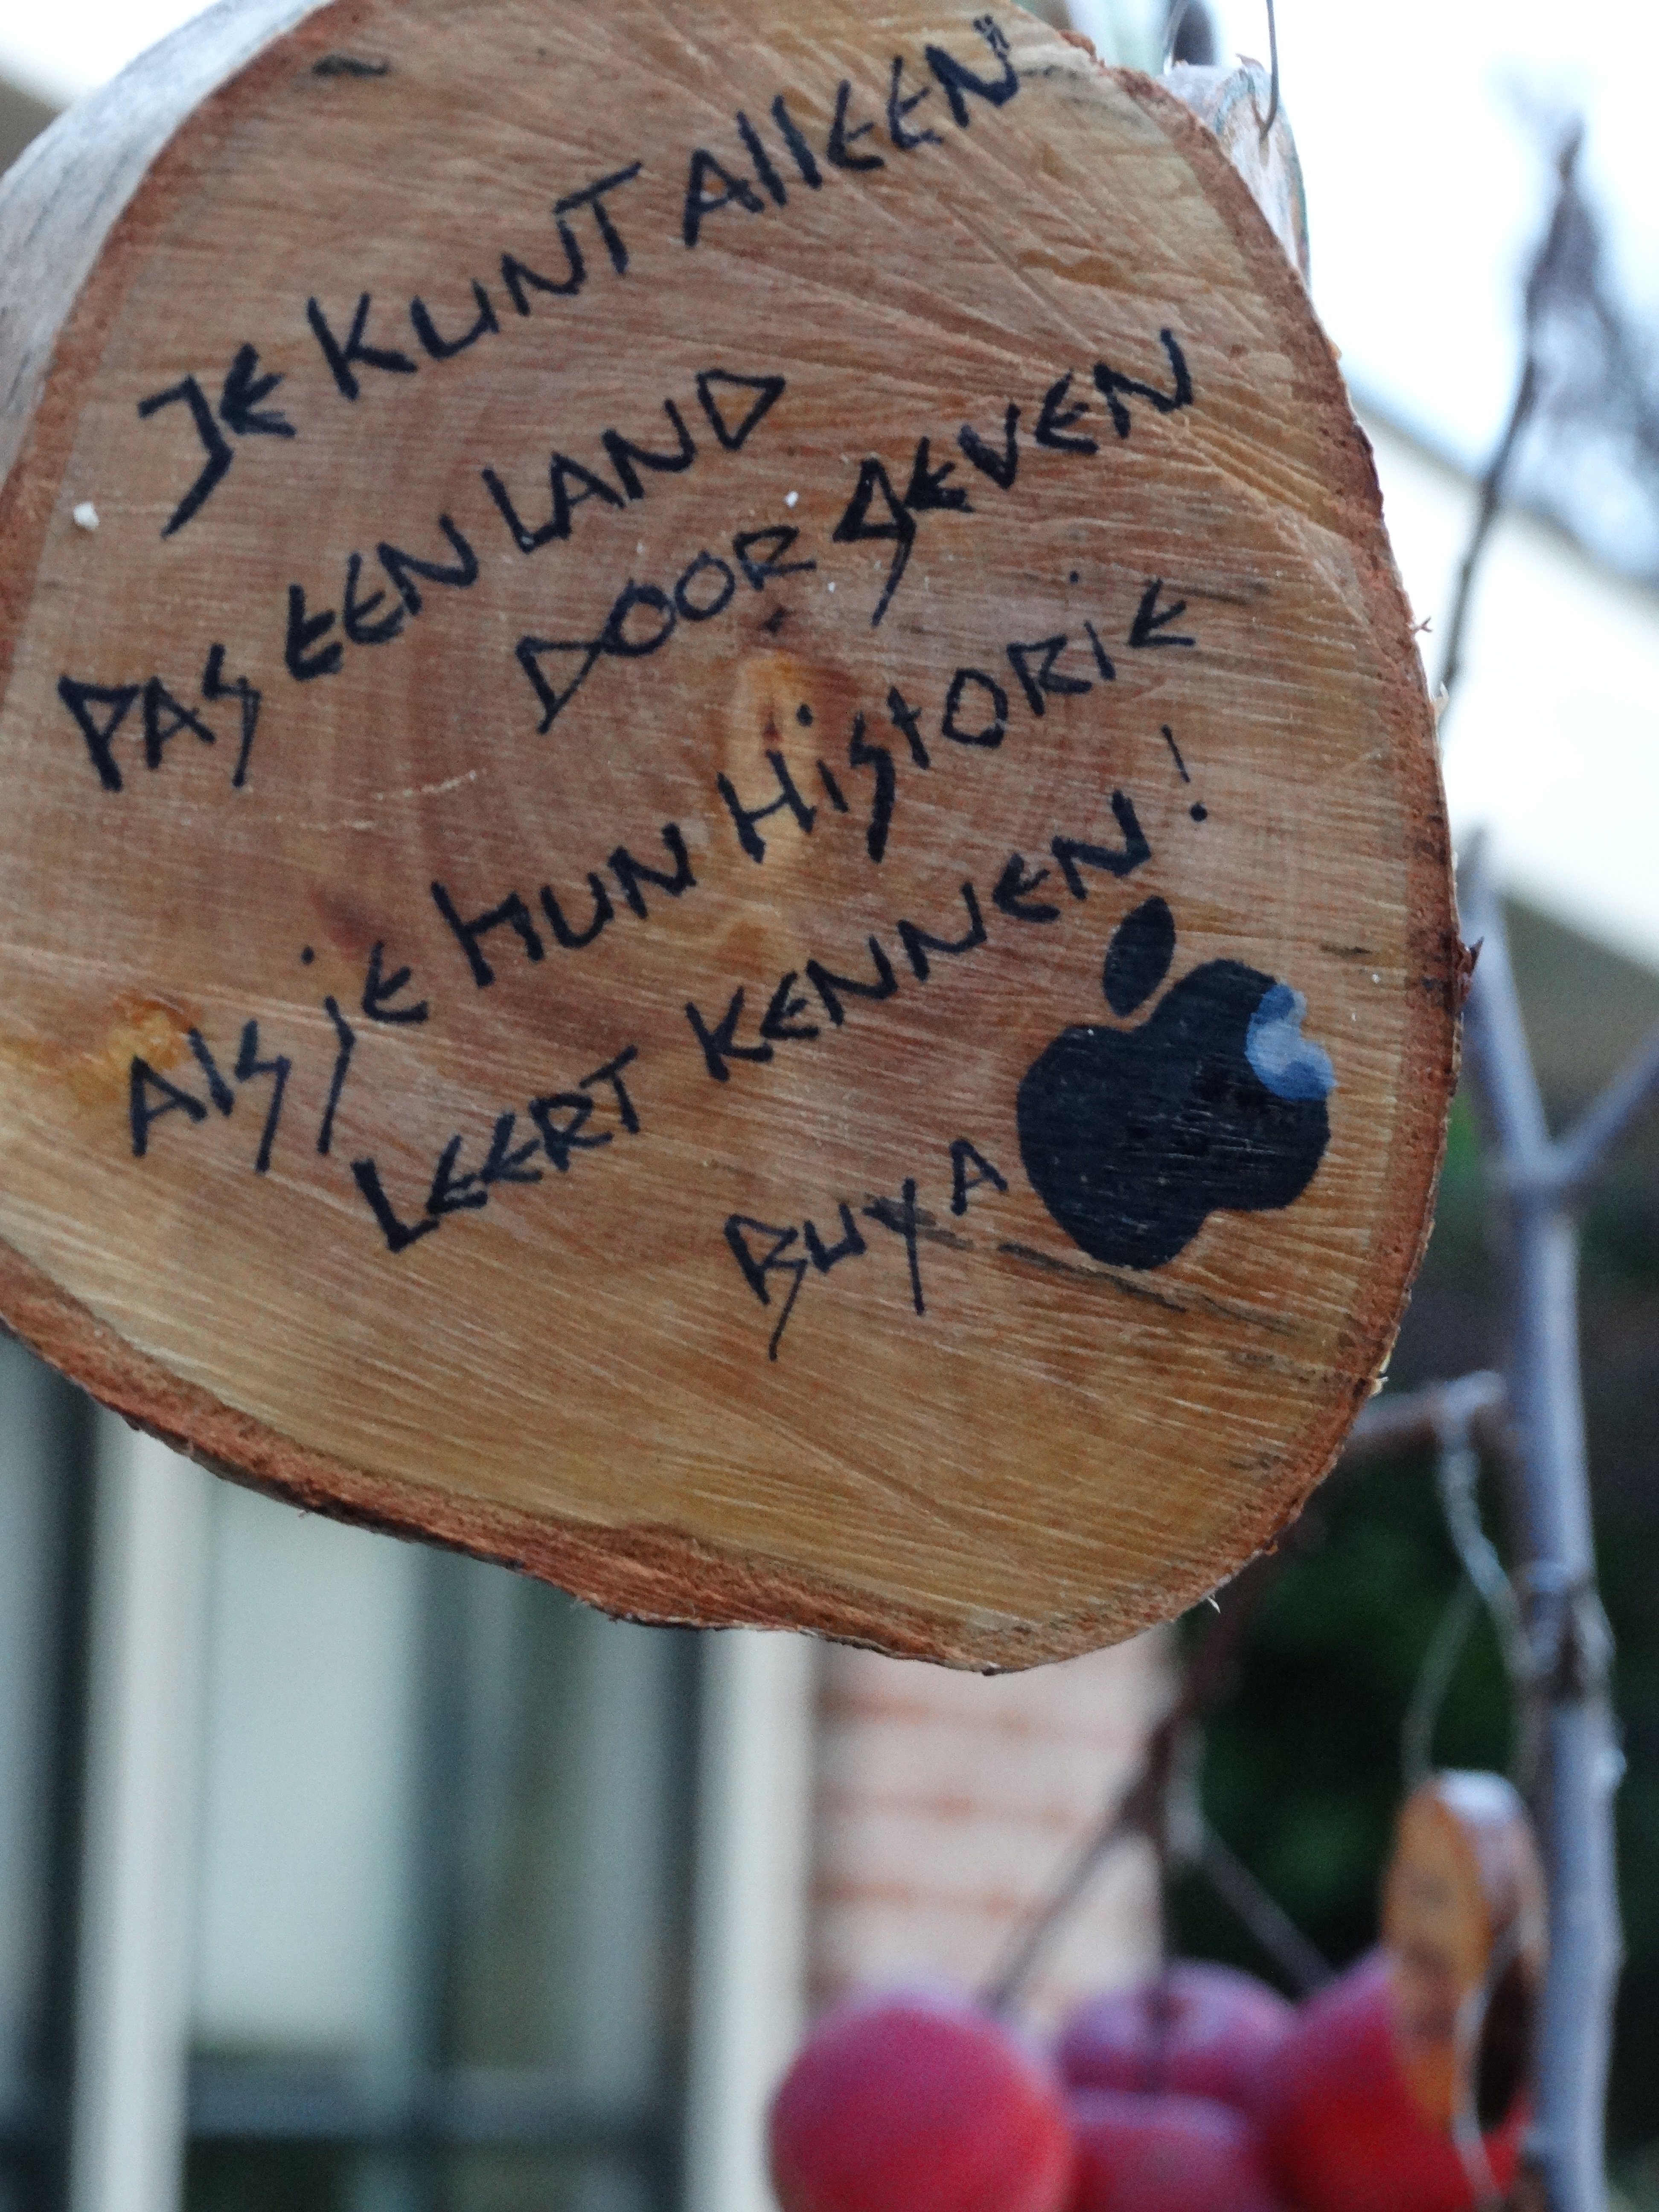 JE KUNT AllEEN
PAS EEN LAND
DOOR GEVEN
Als je HUN HiStORiE
LEERT KENNEN!
RUYA